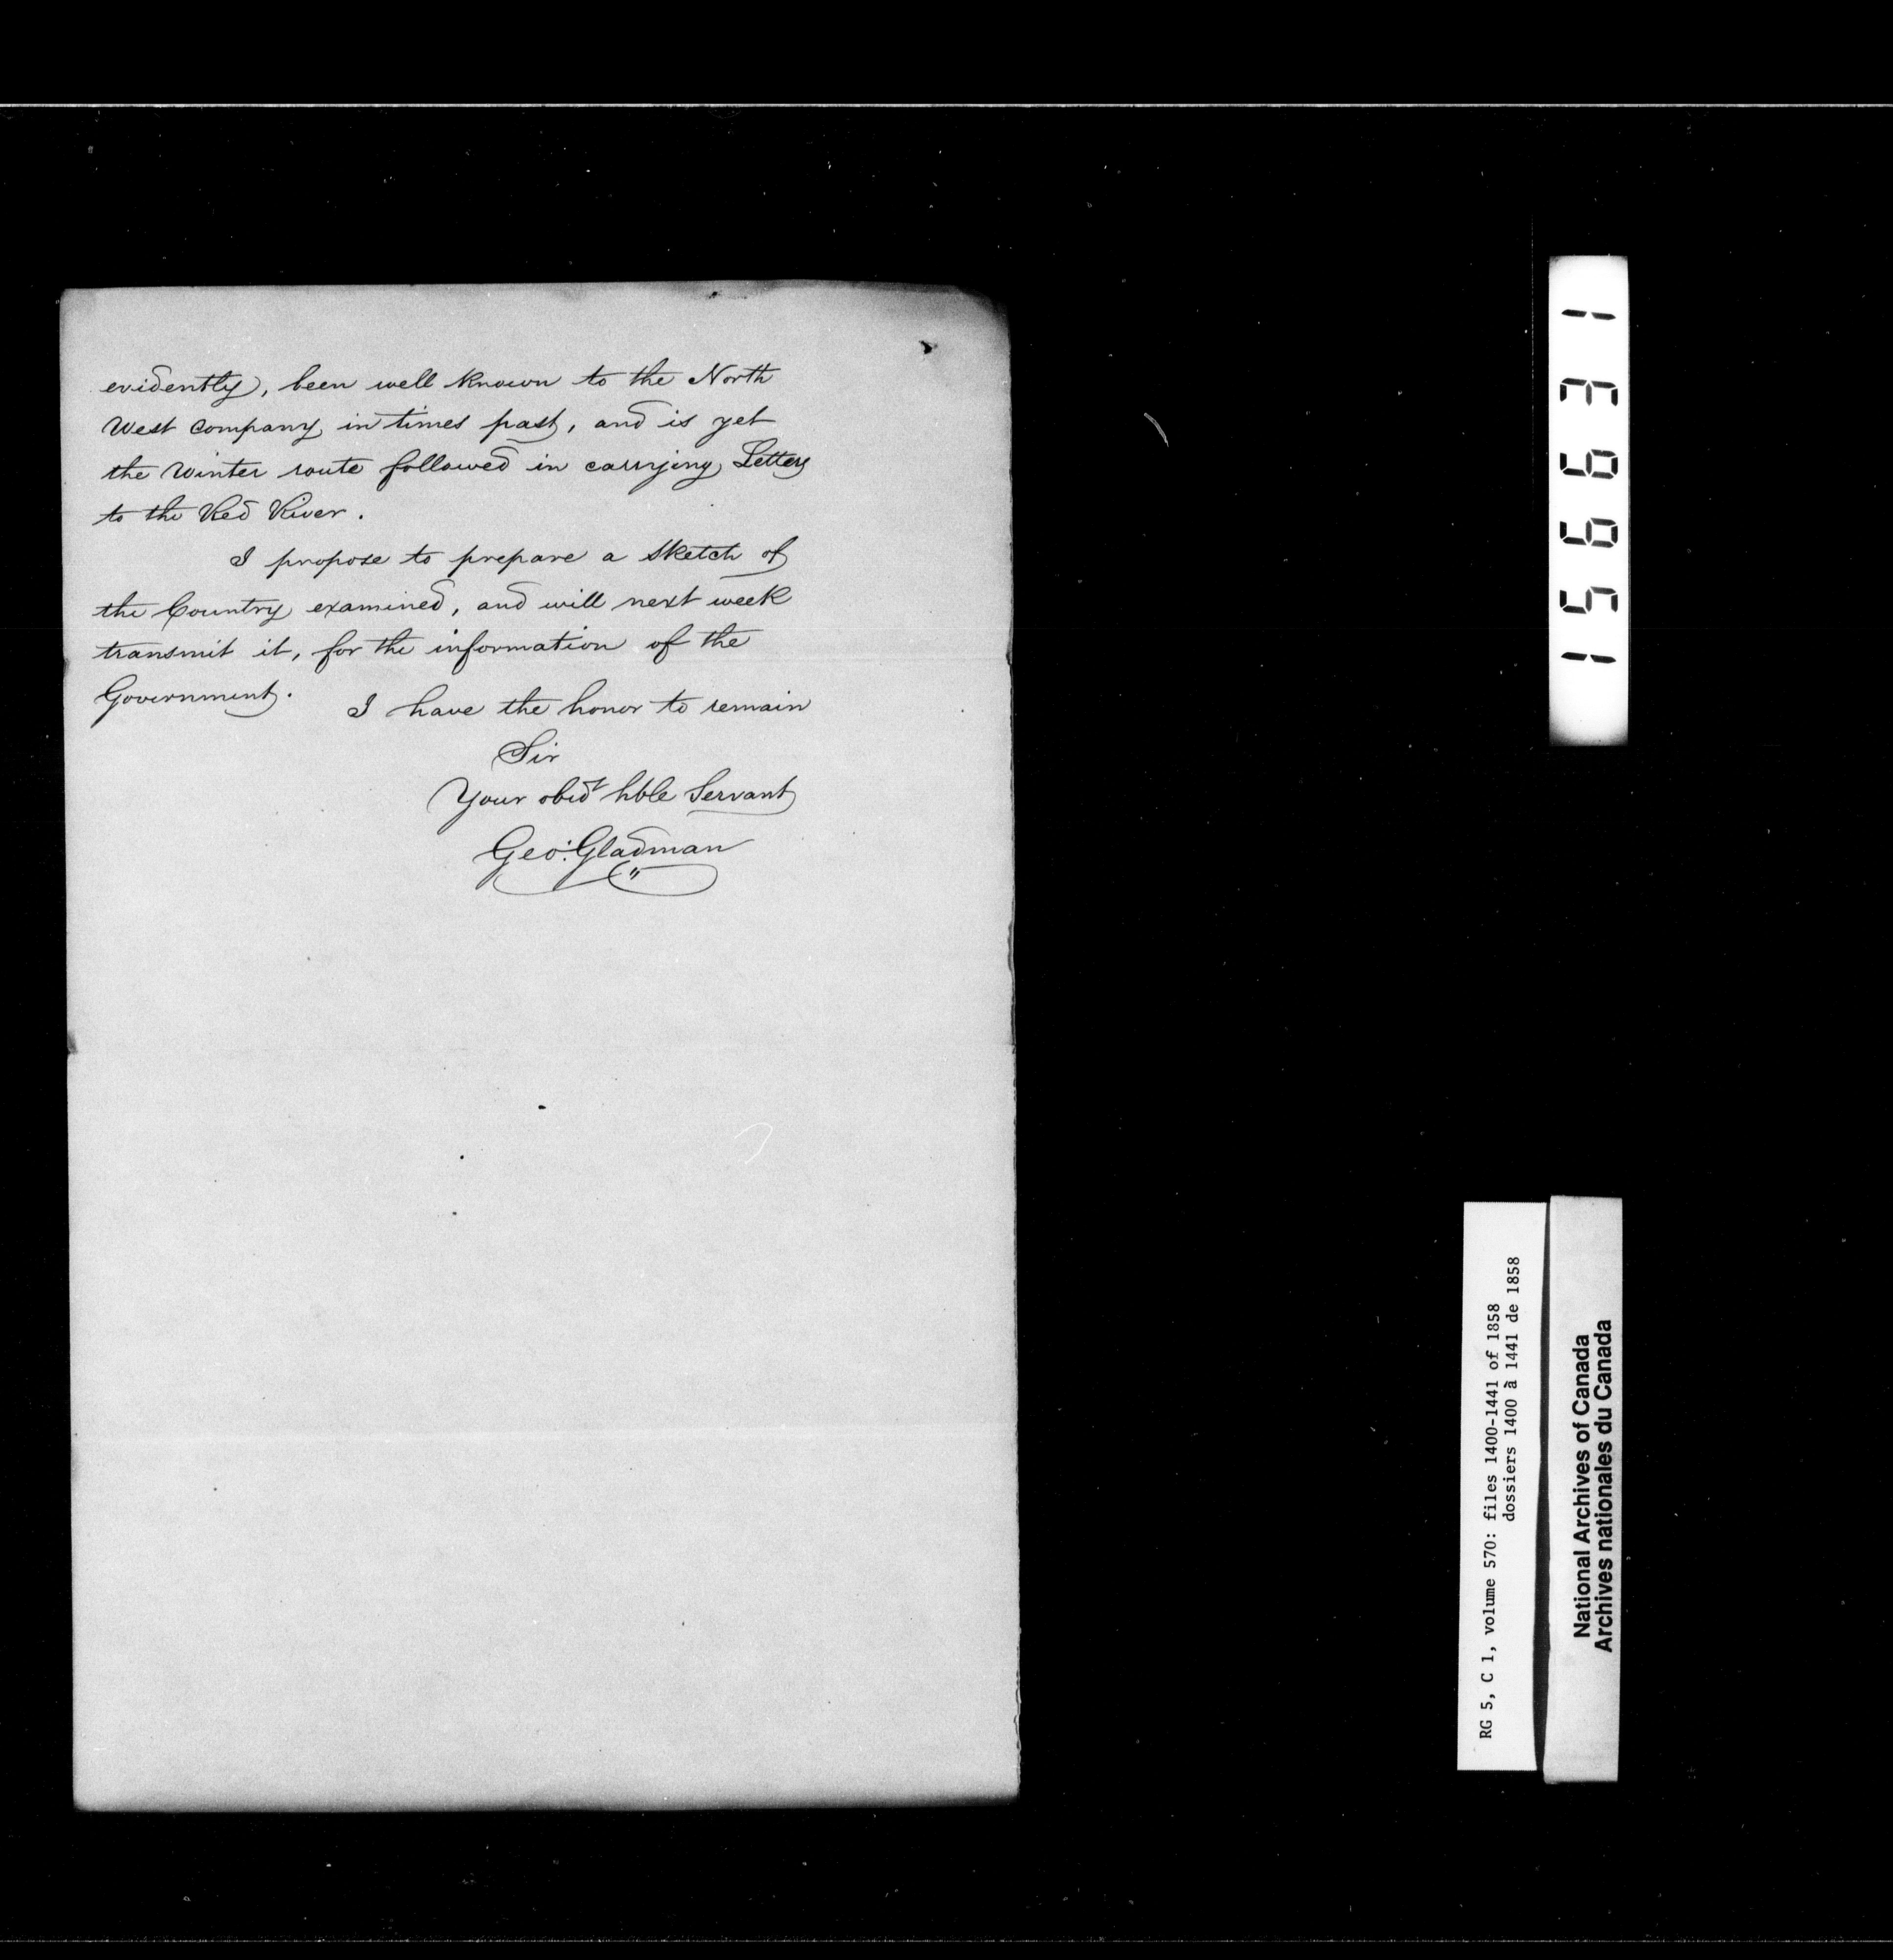 evidently, been well known to the North
West Company in times past, and is yet
the Winter route followed in carrying Letters
to the Red River.
I propose to prepare a sketch of
the Country examined, and will next week
transmit it, for the information of the
Government.
I have the honor to remain
Sir
Your obedt hble Servant
Geo: Gladman
156631
RG 5, C 1, volume 570: files 1400-1441 of 1858
dossiers 1400 à 1441 de 1858
National Archives of Canada
Archives nationales du Canada